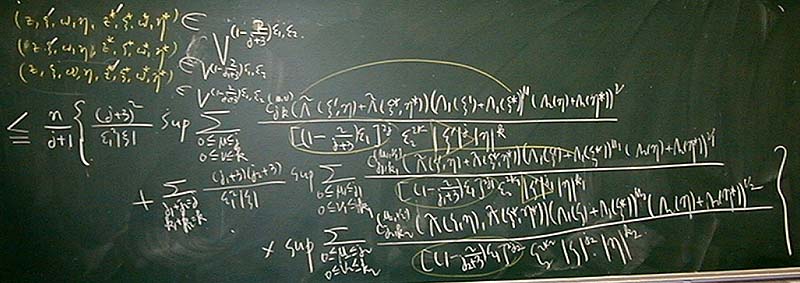 (z, ξ, ω, η, z*, ξ*, ω*, η*) ∈ V^{(1-2/(j+3))ε₁, ε₂}
(z, ξ, ω, η, z*, ξ*, ω*, η*) ∈ V^{(1-2/(j+3))ε₁, ε₂}
(z, ξ, ω, η, z*, ξ*, ω*, η*) ∈ V^{(1-2/(j+3))ε₁, ε₂}
≦ n/(j+1) { (j+3)²/(ε₁²|ξ|) sup Σ_{0≤μ≤j, 0≤ν≤k} C_{jk}^{(μ,ν)} (Λ̃(ξ,η)+Λ̃(ξ*,η*)) (Λ₁(ξ)+Λ₁(ξ*))^μ (Λ₂(η)+Λ₂(η*))^ν / [(1-2/(j+3))ε₁]^{2j} ε₂^{2k} |ξ|^j |η|^k
+ Σ_{j₁+j₂=j, k₁+k₂=k} (j₁+3)(j₂+3)/(ε₁²|ξ|) sup Σ_{0≤μ₁≤j₁, 0≤ν₁≤k₁} C_{j₁,k₁}^{(μ₁,ν₁)} (Λ̃(ξ,η)+Λ̃(ξ*,η*)) (Λ₁(ξ)+Λ₁(ξ*))^{μ₁} (Λ₂(η)+Λ₂(η*))^{ν₁} / [(1-2/(j₁+3))ε₁]^{2j₁} ε₂^{2k₁} |ξ|^{j₁} |η|^{k₁}
× sup Σ_{0≤μ₂≤j₂, 0≤ν₂≤k₂} C_{j₂,k₂}^{(μ₂,ν₂)} (Λ̃(ξ,η), Λ̃(ξ*,η*)) (Λ₁(ξ)+Λ₁(ξ*))^{μ₂} (Λ₂(η)+Λ₂(η*))^{ν₂} / [(1-2/(j₂+3))ε₁]^{2j₂} ε₂^{2k₂} |ξ|^{j₂} |η|^{k₂} }